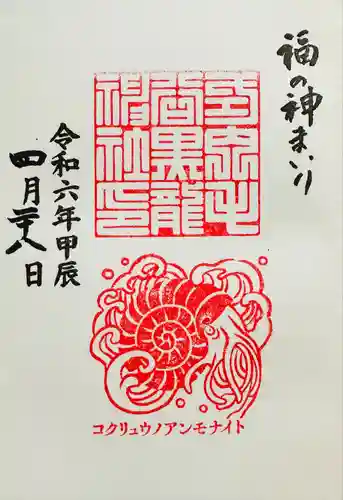 福の神まいり
黒龍
神社印
令和六年甲辰
四月二十八日
コクリュウノアンモナイト